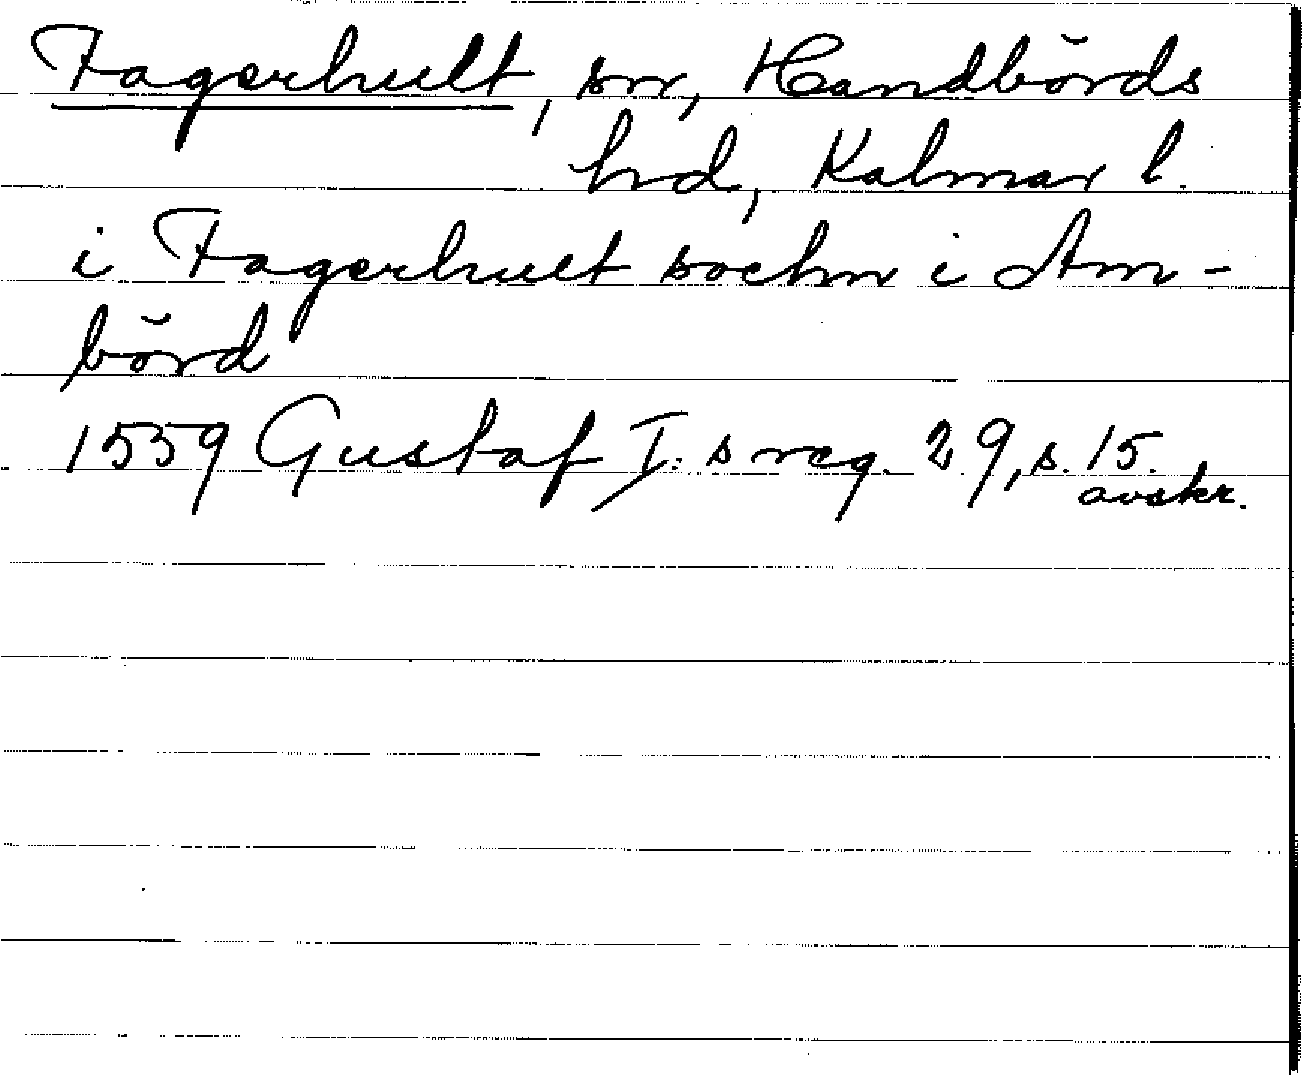 Fagerhult, sn, Handbörds
hd, Kalmar l.
i Fagerhult sochn i An-
börd
1559 Gustaf I:s reg. 29, s. 15.
avskr.